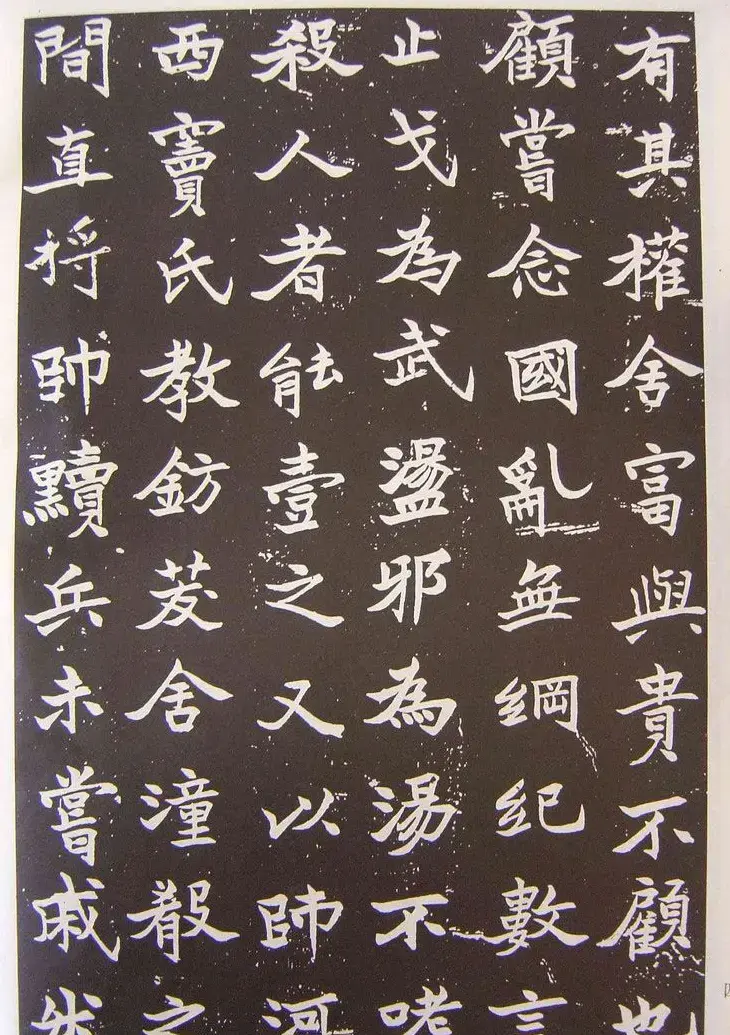 有其權舍富與貴不顧也
顧嘗念國亂無綱紀數言
止戈為武盪邪為湯不嗜
殺人者能壹之又以師河
西竇氏教鈁茇舍潼殽之
間直將帥黷兵未嘗戚然